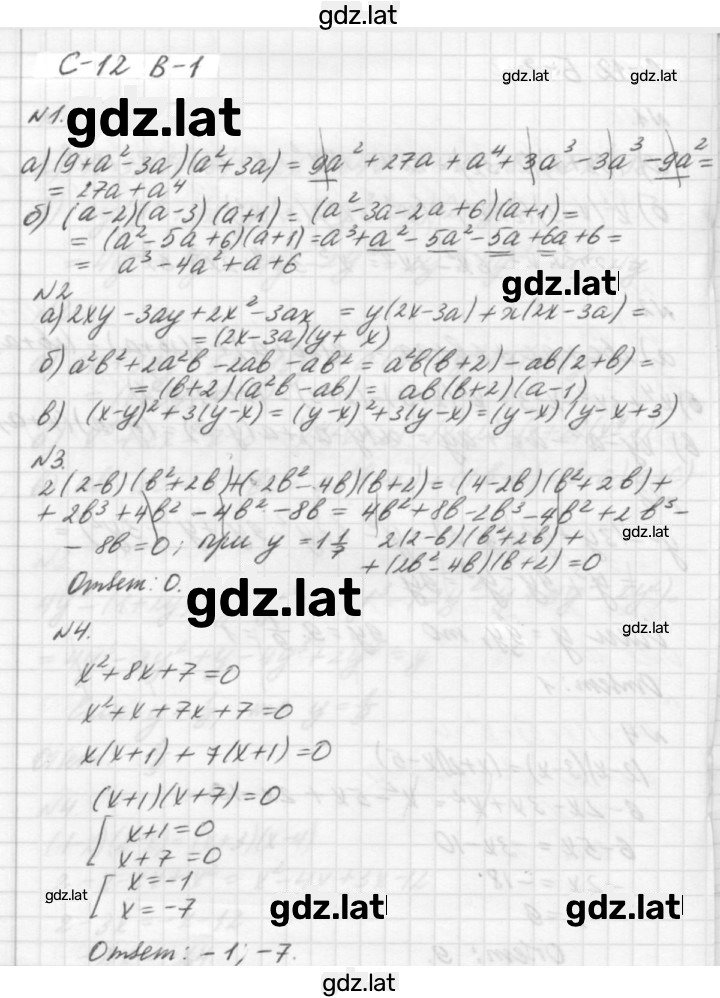 gdz.lat
С-12 В-1
gdz.lat
№1.
gdz.lat
а) (9+a²-3a)(a²+3a) = 9a²+27a+a⁴+3a³-3a³-9a²=
= 27a+a⁴
б) (a-2)(a-3)(a+1) = (a²-3a-2a+6)(a+1)=
= (a²-5a+6)(a+1)=a³+a²-5a²-5a+6a+6=
= a³-4a²+a+6
gdz.lat
№2
а) 2xy-3ay+2x²-3ax = y(2x-3a)+x(2x-3a)=
= (2x-3a)(y+ x)
б) a²b²+2a²b-2ab-ab² = a²b(b+2)-ab(2+b)=
= (b+2)(a²b-ab) = ab(b+2)(a-1)
в) (x-y)²+3(y-x) = (y-x)²+3(y-x)=(y-x)(y-x+3)
№3.
2(2-b)(b²+2b)+(2b²-4b)(b+2) = (4-2b)(b²+2b)+
+2b³+4b²-4b²-8b = 4b²+8b-2b³-4b²+2b³-
gdz.lat
-8b=0; при y=1 1/7 2(2-b)(b²+2b)+
+(2b²-4b)(b+2)=0
Ответ: 0.
gdz.lat
№4.
gdz.lat
x²+8x+7=0
x²+x+7x+7=0
x(x+1)+7(x+1)=0
(x+1)(x+7)=0
[ x+1=0
x+7=0
gdz.lat
[ x=-1
x=-7
gdz.lat
gdz.lat
Ответ: -1; -7.
gdz.lat